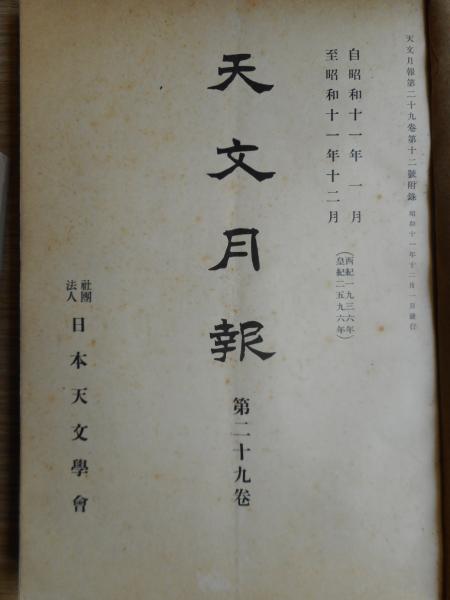 天文月報第二十九卷第十二號附錄 昭和十一年十二月一日發行
自昭和十一年一月
至昭和十一年十二月
(西紀一九三六年
皇紀二五九六年)
天文月報
第二十九卷
社團
法人
日本天文學會